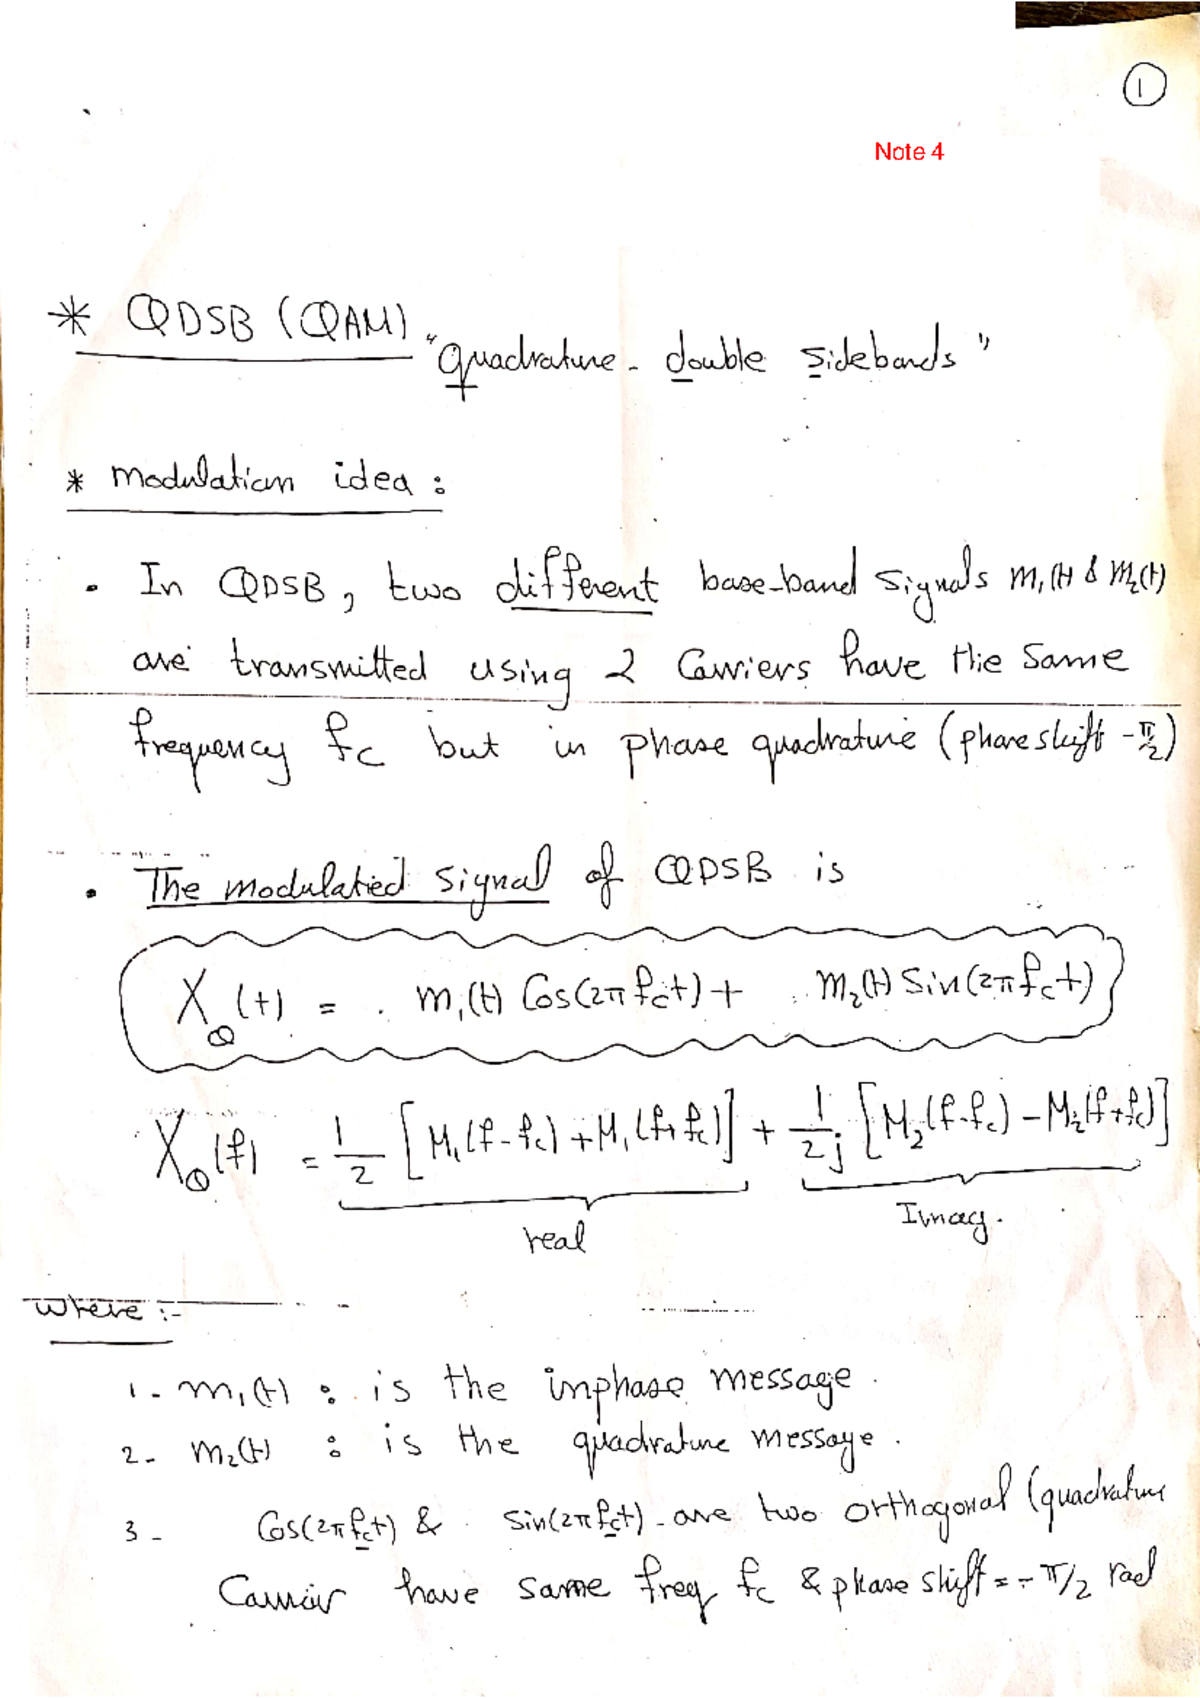 1
Note 4
* QDSB (QAM) "Quadrature - double Sidebands"
* modulation idea :
• In QDSB, two different base-band signals m₁(t) & m₂(t)
are transmitted using 2 Carriers have the same
frequency fc but in phase quadrature (phase shift -π/2)
• The modulated signal of QDSB is
X_Q(t) = m₁(t) Cos(2π fc t) + m₂(t) Sin(2π fc t)
X_Q(f) = 1/2 [M₁(f-fc) + M₁(f+fc)] + 1/2j [M₂(f-fc) - M₂(f+fc)]
real Imag.
where :-
1- m₁(t) : is the inphase message.
2- m₂(t) : is the quadrature message.
3- Cos(2π fc t) & Sin(2π fc t) - are two orthogonal (quadrature
Carrier have same freq fc & phase shift = - π/2 rad